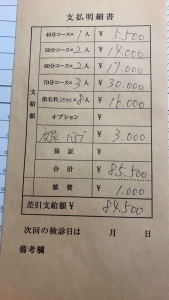 支払明細書
40分コース× 1 人 ¥ 5.500
50分コース× 2 人 ¥ 14.000
60分コース× 2 人 ¥ 17.000
70分コース× 3 人 ¥ 30.000
指名料 × 8 人 ¥ 15.000
オプション ¥
¥ 3.000
保証 ¥
合計 ¥ 85.500
雑費 ¥ 1.000
差引支給額 ¥ 84.500
支給額
次回の検診日は 月 日
備考欄